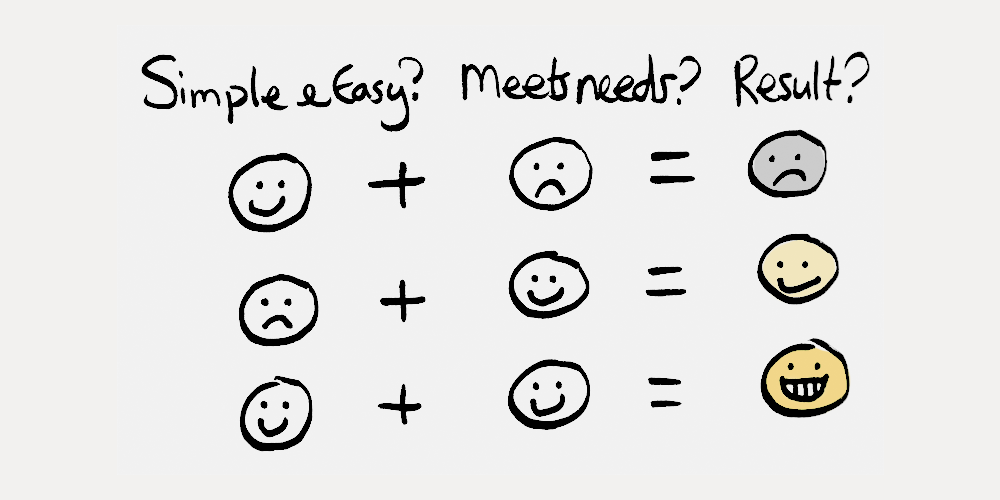 Simple & Easy? Meets needs? Result?
+ =
+ =
+ =